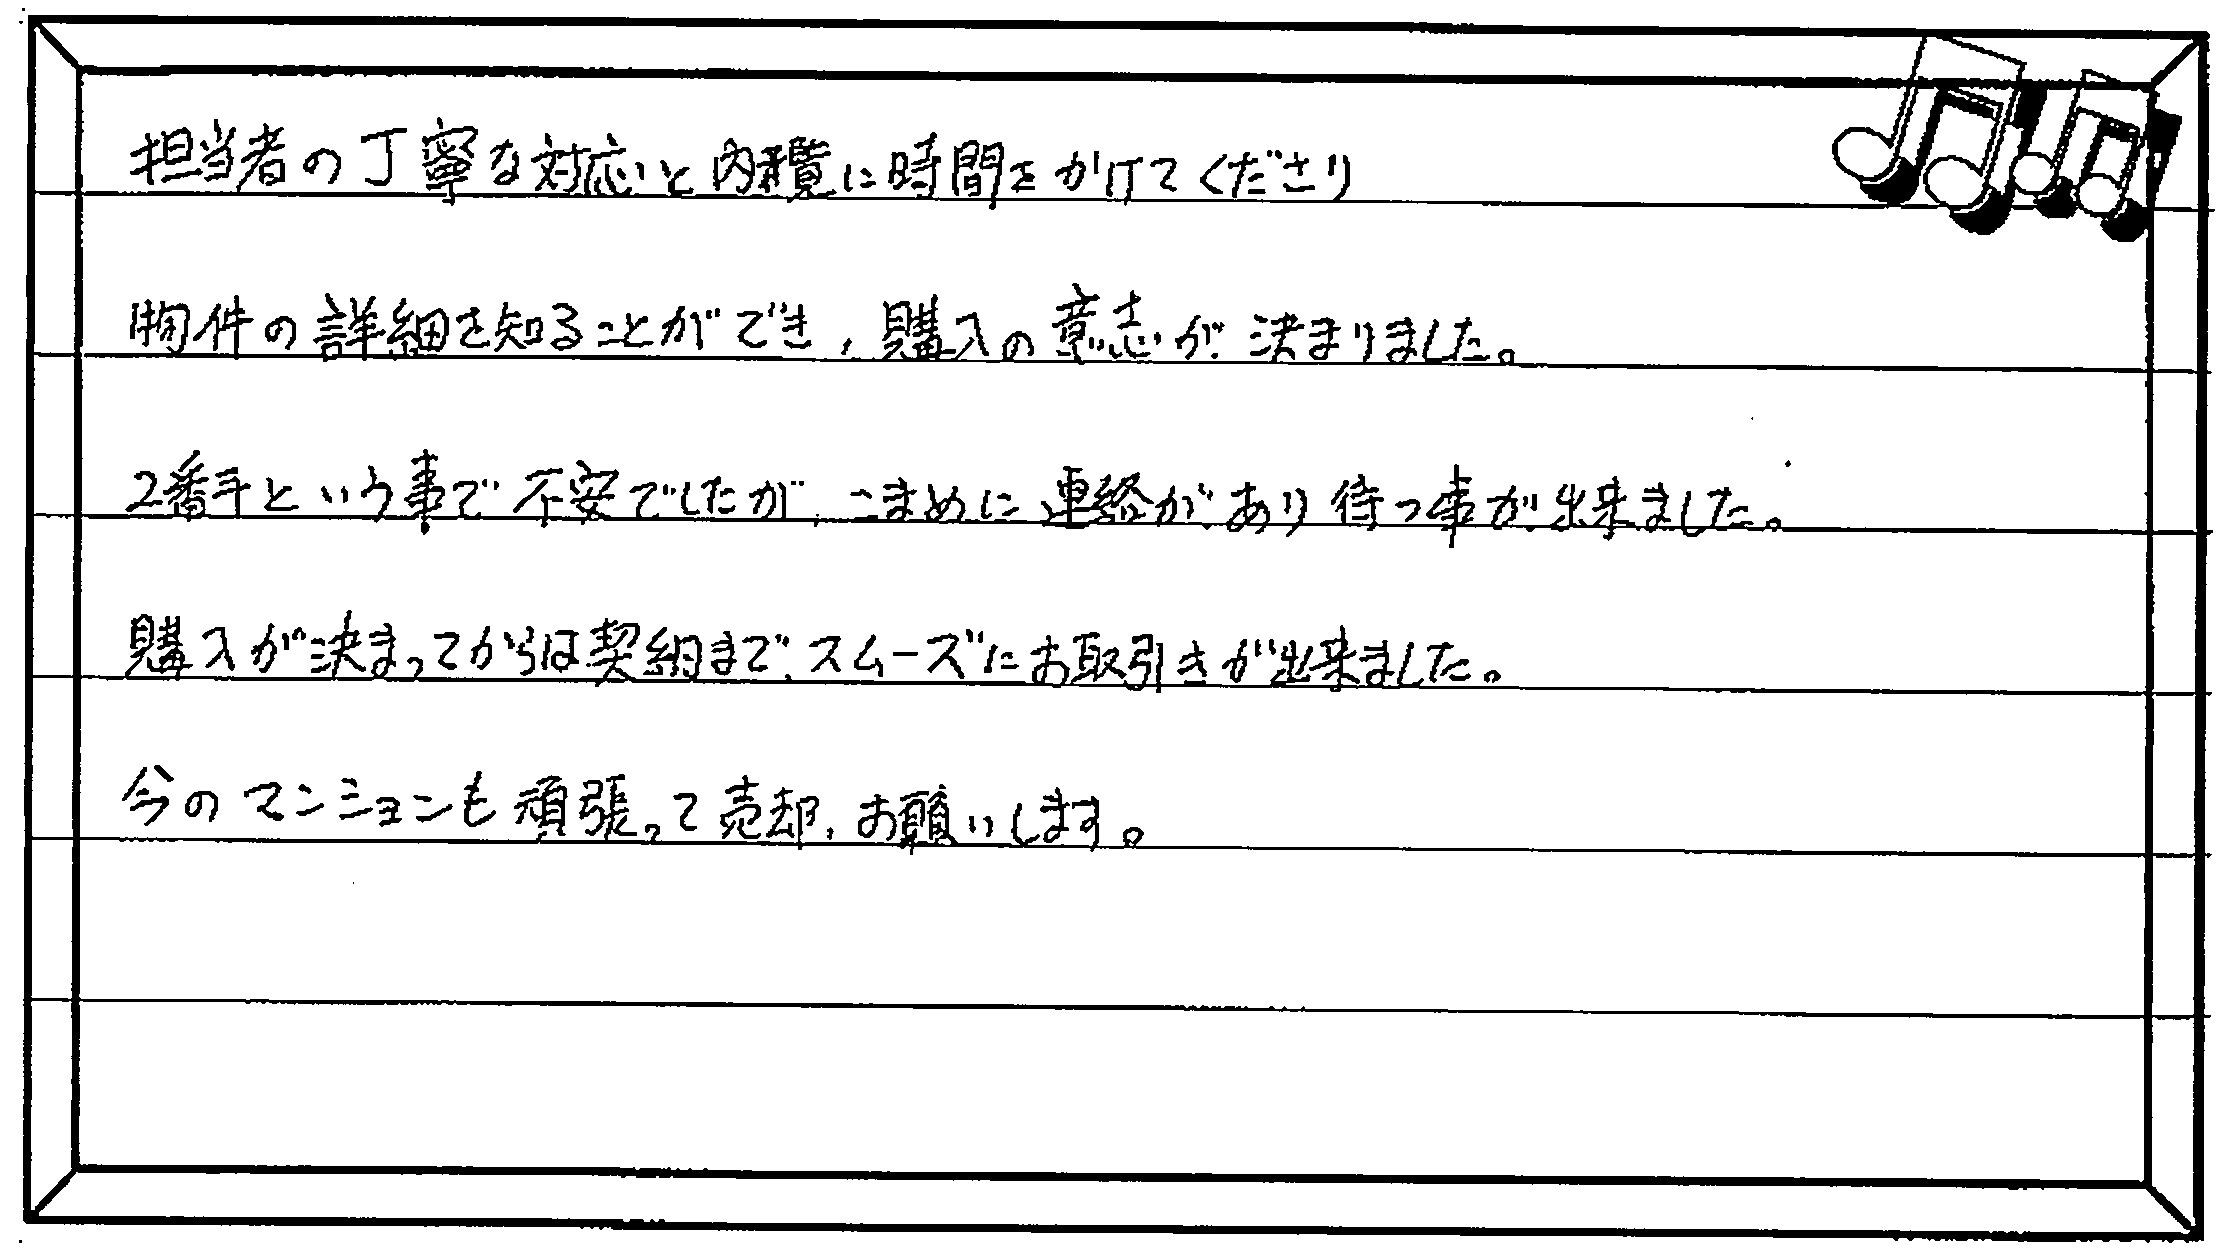 担当者の丁寧な対応と内覧に時間をかけてくださり
物件の詳細を知ることができ、購入の意志が決まりました。
2番手という事で不安でしたが、こまめに連絡があり待つ事が出来ました。
購入が決まってからは契約まで、スムーズにお取引きが出来ました。
今のマンションも頑張って売却、お願いします。